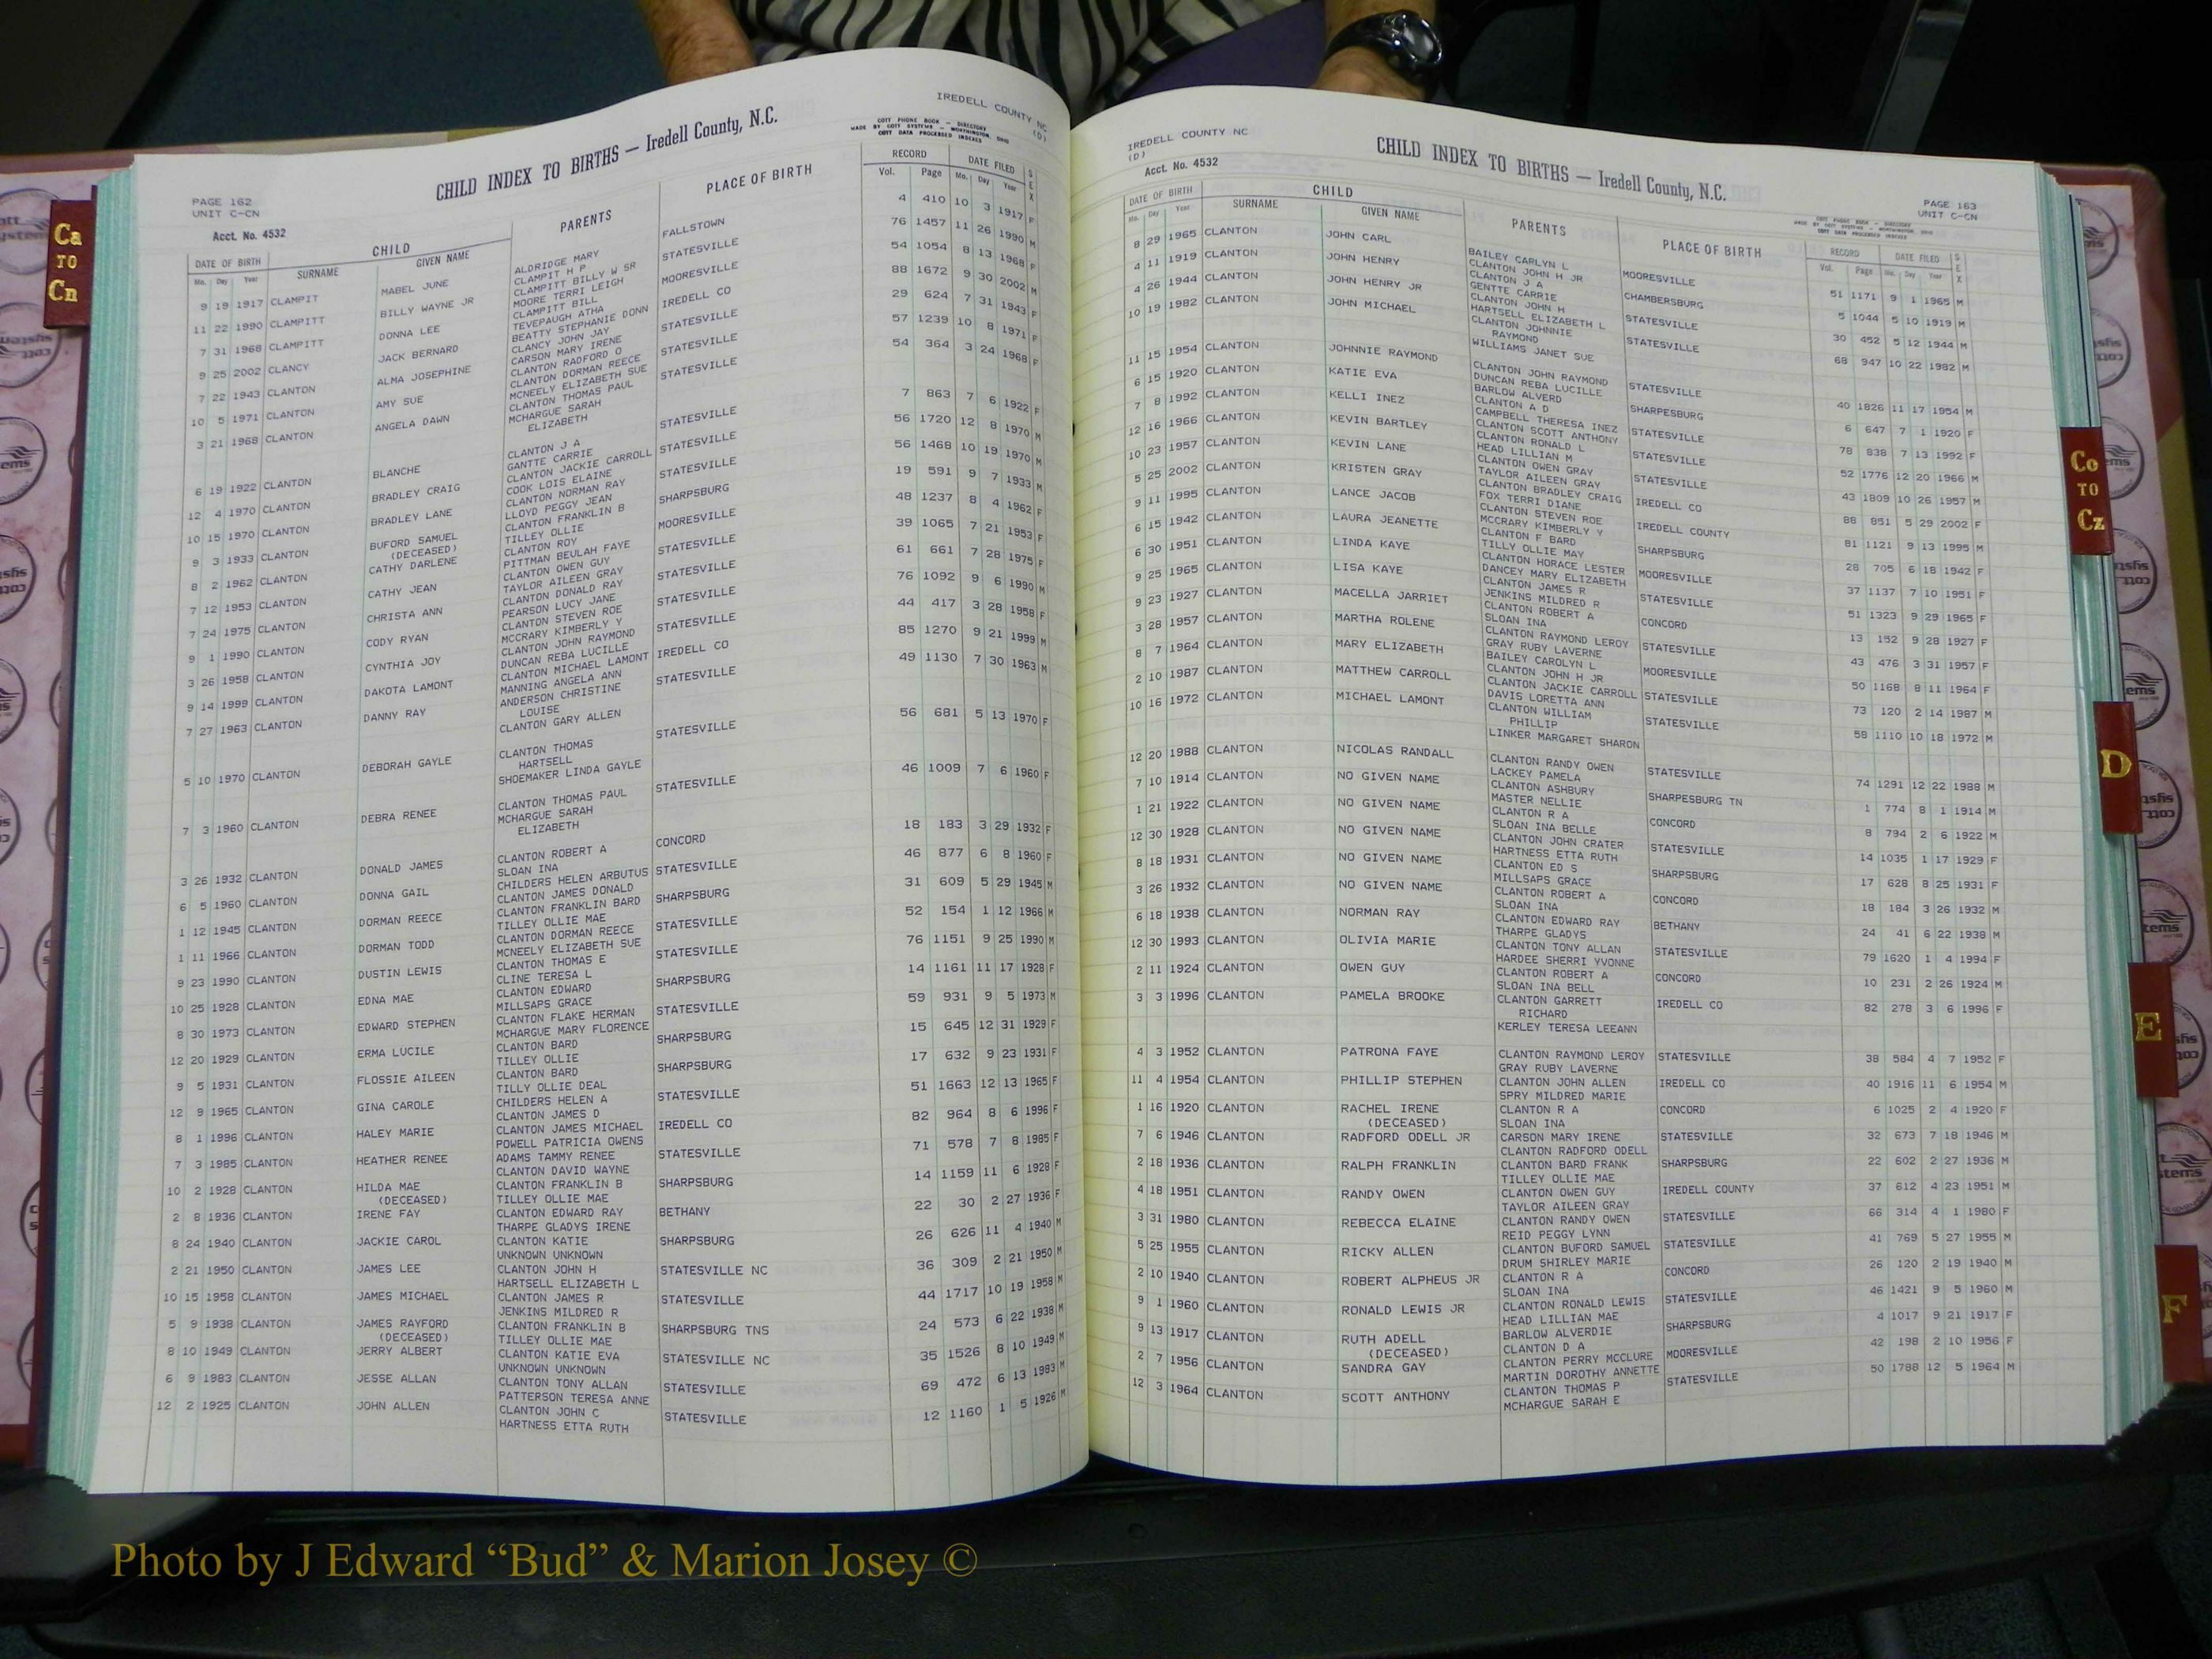 IREDELL COUNTY NC
(D)
CHILD INDEX TO BIRTHS — Iredell County, N.C.
COTT PHONE BOOK - DIRECTORY
MADE BY COTT SYSTEMS - WORTHINGTON, OHIO
COTT DATA PROCESSED INDEXES
PAGE 162
UNIT C-CN
Acct. No. 4532
DATE OF BIRTH CHILD PARENTS PLACE OF BIRTH RECORD DATE FILED SEX
Mo. Day Year SURNAME GIVEN NAME Vol. Page Mo. Day Year
9 19 1917 CLAMPIT MABEL JUNE ALDRIDGE MARY FALLSTOWN 4 410 10 3 1917 F
CLAMPIT H P
11 22 1990 CLAMPITT BILLY WAYNE JR CLAMPITT BILLY W SR STATESVILLE 76 1457 11 26 1990 M
MOORE TERRI LEIGH
7 31 1968 CLAMPITT DONNA LEE CLAMPITT BILL MOORESVILLE 54 1054 8 13 1968 F
TEVEPAUGH ATHA
9 25 2002 CLANCY JACK BERNARD BEATTY STEPHANIE DONN IREDELL CO 88 1672 9 30 2002 M
CLANCY JOHN JAY
7 22 1943 CLANTON ALMA JOSEPHINE CARSON MARY IRENE STATESVILLE 29 624 7 31 1943 F
CLANTON RADFORD O
10 5 1971 CLANTON AMY SUE CLANTON DORMAN REECE STATESVILLE 57 1239 10 8 1971 F
MCNEELY ELIZABETH SUE
3 21 1968 CLANTON ANGELA DAWN CLANTON THOMAS PAUL STATESVILLE 54 364 3 24 1968 F
MCHARGUE SARAH
ELIZABETH
6 19 1922 CLANTON BLANCHE CLANTON J A STATESVILLE 7 863 7 6 1922 F
GANTTE CARRIE
12 4 1970 CLANTON BRADLEY CRAIG CLANTON JACKIE CARROLL STATESVILLE 56 1720 12 8 1970 M
COOK LOIS ELAINE
10 15 1970 CLANTON BRADLEY LANE CLANTON NORMAN RAY STATESVILLE 56 1468 10 19 1970 M
LLOYD PEGGY JEAN
9 3 1933 CLANTON BUFORD SAMUEL CLANTON FRANKLIN B SHARPSBURG 19 591 9 7 1933 M
(DECEASED) TILLEY OLLIE
8 2 1962 CLANTON CATHY DARLENE CLANTON ROY MOORESVILLE 48 1237 8 4 1962 F
PITTMAN BEULAH FAYE
7 12 1953 CLANTON CATHY JEAN CLANTON OWEN GUY STATESVILLE 39 1065 7 21 1953 F
TAYLOR AILEEN GRAY
7 24 1975 CLANTON CHRISTA ANN CLANTON DONALD RAY STATESVILLE 61 661 7 28 1975 F
PEARSON LUCY JANE
9 1 1990 CLANTON CODY RYAN CLANTON STEVEN ROE STATESVILLE 76 1092 9 6 1990 M
MCCRARY KIMBERLY Y
3 26 1958 CLANTON CYNTHIA JOY CLANTON JOHN RAYMOND STATESVILLE 44 417 3 28 1958 F
DUNCAN REBA LUCILLE
9 14 1999 CLANTON DAKOTA LAMONT CLANTON MICHAEL LAMONT IREDELL CO 85 1270 9 21 1999 M
MANNING ANGELA ANN
7 27 1963 CLANTON DANNY RAY ANDERSON CHRISTINE STATESVILLE 49 1130 7 30 1963 M
LOUISE
CLANTON GARY ALLEN
5 10 1970 CLANTON DEBORAH GAYLE CLANTON THOMAS STATESVILLE 56 681 5 13 1970 F
HARTSELL
SHOEMAKER LINDA GAYLE
7 3 1960 CLANTON DEBRA RENEE CLANTON THOMAS PAUL STATESVILLE 46 1009 7 6 1960 F
MCHARGUE SARAH
ELIZABETH
3 26 1932 CLANTON DONALD JAMES CLANTON ROBERT A CONCORD 18 183 3 29 1932 F
SLOAN INA
6 5 1960 CLANTON DONNA GAIL CHILDERS HELEN ARBUTUS STATESVILLE 46 877 6 8 1960 F
CLANTON JAMES DONALD
1 12 1945 CLANTON DORMAN REECE CLANTON FRANKLIN BARD SHARPSBURG 31 609 5 29 1945 M
TILLEY OLLIE MAE
1 11 1966 CLANTON DORMAN TODD CLANTON DORMAN REECE STATESVILLE 52 154 1 12 1966 M
MCNEELY ELIZABETH SUE
9 23 1990 CLANTON DUSTIN LEWIS CLANTON THOMAS E STATESVILLE 76 1151 9 25 1990 M
CLINE TERESA L
10 25 1928 CLANTON EDNA MAE CLANTON EDWARD SHARPSBURG 14 1161 11 17 1928 F
MILLSAPS GRACE
8 30 1973 CLANTON EDWARD STEPHEN CLANTON FLAKE HERMAN STATESVILLE 59 931 9 5 1973 M
MCHARGUE MARY FLORENCE
12 20 1929 CLANTON ERMA LUCILE CLANTON BARD SHARPSBURG 15 645 12 31 1929 F
TILLEY OLLIE
9 5 1931 CLANTON FLOSSIE AILEEN CLANTON BARD SHARPSBURG 17 632 9 23 1931 F
TILLY OLLIE DEAL
12 9 1965 CLANTON GINA CAROLE CHILDERS HELEN A STATESVILLE 51 1663 12 13 1965 F
CLANTON JAMES D
8 1 1996 CLANTON HALEY MARIE CLANTON JAMES MICHAEL IREDELL CO 82 964 8 6 1996 F
POWELL PATRICIA OWENS
7 3 1985 CLANTON HEATHER RENEE ADAMS TAMMY RENEE STATESVILLE 71 578 7 8 1985 F
CLANTON DAVID WAYNE
10 2 1928 CLANTON HILDA MAE CLANTON FRANKLIN B SHARPSBURG 14 1159 11 6 1928 F
(DECEASED) TILLEY OLLIE MAE
2 8 1936 CLANTON IRENE FAY CLANTON EDWARD RAY BETHANY 22 30 2 27 1936 F
THARPE GLADYS IRENE
8 24 1940 CLANTON JACKIE CAROL CLANTON KATIE SHARPSBURG 26 626 11 4 1940 M
UNKNOWN UNKNOWN
2 21 1950 CLANTON JAMES LEE CLANTON JOHN H STATESVILLE NC 36 309 2 21 1950 M
HARTSELL ELIZABETH L
10 15 1958 CLANTON JAMES MICHAEL CLANTON JAMES R STATESVILLE 44 1717 10 19 1958 M
JENKINS MILDRED R
5 9 1938 CLANTON JAMES RAYFORD CLANTON FRANKLIN B SHARPSBURG TNS 24 573 6 22 1938 M
(DECEASED) TILLEY OLLIE MAE
8 10 1949 CLANTON JERRY ALBERT CLANTON KATIE EVA STATESVILLE NC 35 1526 8 10 1949 M
UNKNOWN UNKNOWN
6 9 1983 CLANTON JESSE ALLAN CLANTON TONY ALLAN STATESVILLE 69 472 6 13 1983 M
PATTERSON TERESA ANNE
12 2 1925 CLANTON JOHN ALLEN CLANTON JOHN C STATESVILLE 12 1160 1 5 1926 M
HARTNESS ETTA RUTH
IREDELL COUNTY NC
(D)
Acct. No. 4532
CHILD INDEX TO BIRTHS — Iredell County, N.C.
PAGE 163
UNIT C-CN
COTT PHONE BOOK - DIRECTORY
MADE BY COTT SYSTEMS - WORTHINGTON, OHIO
COTT DATA PROCESSED INDEXES
DATE OF BIRTH CHILD PARENTS PLACE OF BIRTH RECORD DATE FILED SEX
Mo. Day Year SURNAME GIVEN NAME Vol. Page Mo. Day Year
8 29 1965 CLANTON JOHN CARL BAILEY CARLYN L MOORESVILLE 51 1171 9 1 1965 M
CLANTON JOHN H JR
4 11 1919 CLANTON JOHN HENRY CLANTON J A CHAMBERSBURG 5 1044 5 10 1919 M
GENTTE CARRIE
4 26 1944 CLANTON JOHN HENRY JR CLANTON JOHN H STATESVILLE 30 452 5 12 1944 M
HARTSELL ELIZABETH L
10 19 1982 CLANTON JOHN MICHAEL CLANTON JOHNNIE STATESVILLE 68 947 10 22 1982 M
RAYMOND
WILLIAMS JANET SUE
11 15 1954 CLANTON JOHNNIE RAYMOND CLANTON JOHN RAYMOND STATESVILLE 40 1826 11 17 1954 M
DUNCAN REBA LUCILLE
6 15 1920 CLANTON KATIE EVA BARLOW ALVERD SHARPESBURG 6 647 7 1 1920 F
CLANTON A D
7 8 1992 CLANTON KELLI INEZ CAMPBELL THERESA INEZ STATESVILLE 78 838 7 13 1992 F
CLANTON SCOTT ANTHONY
12 16 1966 CLANTON KEVIN BARTLEY CLANTON RONALD L STATESVILLE 52 1776 12 20 1966 M
HEAD LILLIAN M
10 23 1957 CLANTON KEVIN LANE CLANTON OWEN GRAY STATESVILLE 43 1809 10 26 1957 M
TAYLOR AILEEN GRAY
5 25 2002 CLANTON KRISTEN GRAY CLANTON BRADLEY CRAIG IREDELL CO 88 851 5 29 2002 F
FOX TERRI DIANE
9 11 1995 CLANTON LANCE JACOB CLANTON STEVEN ROE IREDELL COUNTY 81 1121 9 13 1995 M
MCCRARY KIMBERLY Y
6 15 1942 CLANTON LAURA JEANETTE CLANTON F BARD SHARPSBURG 28 705 6 18 1942 F
TILLY OLLIE MAY
6 30 1951 CLANTON LINDA KAYE CLANTON HORACE LESTER MOORESVILLE 37 1137 7 10 1951 F
DANCEY MARY ELIZABETH
9 25 1965 CLANTON LISA KAYE CLANTON JAMES R STATESVILLE 51 1323 9 29 1965 F
JENKINS MILDRED R
9 23 1927 CLANTON MACELLA JARRIET CLANTON ROBERT A CONCORD 13 152 9 28 1927 F
SLOAN INA
3 28 1957 CLANTON MARTHA ROLENE CLANTON RAYMOND LEROY STATESVILLE 43 476 3 31 1957 F
GRAY RUBY LAVERNE
8 7 1964 CLANTON MARY ELIZABETH BAILEY CAROLYN L MOORESVILLE 50 1168 8 11 1964 F
CLANTON JOHN H JR
2 10 1987 CLANTON MATTHEW CARROLL CLANTON JACKIE CARROLL STATESVILLE 73 120 2 14 1987 M
DAVIS LORETTA ANN
10 16 1972 CLANTON MICHAEL LAMONT CLANTON WILLIAM STATESVILLE 58 1110 10 18 1972 M
PHILLIP
LINKER MARGARET SHARON
12 20 1988 CLANTON NICOLAS RANDALL CLANTON RANDY OWEN STATESVILLE 74 1291 12 22 1988 M
LACKEY PAMELA
7 10 1914 CLANTON NO GIVEN NAME CLANTON ASHBURY SHARPESBURG TN 1 774 8 1 1914 M
MASTER NELLIE
1 21 1922 CLANTON NO GIVEN NAME CLANTON R A CONCORD 8 794 2 6 1922 M
SLOAN INA BELLE
12 30 1928 CLANTON NO GIVEN NAME CLANTON JOHN CRATER STATESVILLE 14 1035 1 17 1929 F
HARTNESS ETTA RUTH
8 18 1931 CLANTON NO GIVEN NAME CLANTON ED S SHARPSBURG 17 628 8 25 1931 F
MILLSAPS GRACE
3 26 1932 CLANTON NO GIVEN NAME CLANTON ROBERT A CONCORD 18 184 3 26 1932 M
SLOAN INA
6 18 1938 CLANTON NORMAN RAY CLANTON EDWARD RAY BETHANY 24 41 6 22 1938 M
THARPE GLADYS
12 30 1993 CLANTON OLIVIA MARIE CLANTON TONY ALLAN STATESVILLE 79 1620 1 4 1994 F
HARDEE SHERRI YVONNE
2 11 1924 CLANTON OWEN GUY CLANTON ROBERT A CONCORD 10 231 2 26 1924 M
SLOAN INA BELL
3 3 1996 CLANTON PAMELA BROOKE CLANTON GARRETT IREDELL CO 82 278 3 6 1996 F
RICHARD
KERLEY TERESA LEEANN
4 3 1952 CLANTON PATRONA FAYE CLANTON RAYMOND LEROY STATESVILLE 38 584 4 7 1952 F
GRAY RUBY LAVERNE
11 4 1954 CLANTON PHILLIP STEPHEN CLANTON JOHN ALLEN IREDELL CO 40 1916 11 6 1954 M
SPRY MILDRED MARIE
1 16 1920 CLANTON RACHEL IRENE CLANTON R A CONCORD 6 1025 2 4 1920 F
(DECEASED) SLOAN INA
7 6 1946 CLANTON RADFORD ODELL JR CARSON MARY IRENE STATESVILLE 32 673 7 18 1946 M
CLANTON RADFORD ODELL
2 18 1936 CLANTON RALPH FRANKLIN CLANTON BARD FRANK SHARPSBURG 22 602 2 27 1936 M
TILLEY OLLIE MAE
4 18 1951 CLANTON RANDY OWEN CLANTON OWEN GUY IREDELL COUNTY 37 612 4 23 1951 M
TAYLOR AILEEN GRAY
3 31 1980 CLANTON REBECCA ELAINE CLANTON RANDY OWEN STATESVILLE 66 314 4 1 1980 F
REID PEGGY LYNN
5 25 1955 CLANTON RICKY ALLEN CLANTON BUFORD SAMUEL STATESVILLE 41 769 5 27 1955 M
DRUM SHIRLEY MARIE
2 10 1940 CLANTON ROBERT ALPHEUS JR CLANTON R A CONCORD 26 120 2 19 1940 M
SLOAN INA
9 1 1960 CLANTON RONALD LEWIS JR CLANTON RONALD LEWIS STATESVILLE 46 1421 9 5 1960 M
HEAD LILLIAN MAE
9 13 1917 CLANTON RUTH ADELL BARLOW ALVERDIE SHARPSBURG 4 1017 9 21 1917 F
(DECEASED) CLANTON D A
2 7 1956 CLANTON SANDRA GAY CLANTON PERRY MCCLURE MOORESVILLE 42 198 2 10 1956 F
MARTIN DOROTHY ANNETTE
12 3 1964 CLANTON SCOTT ANTHONY CLANTON THOMAS P STATESVILLE 50 1788 12 5 1964 M
MCHARGUE SARAH E
Ca
TO
Cn
Co
TO
Cz
D
E
F
Photo by J Edward “Bud” & Marion Josey ©